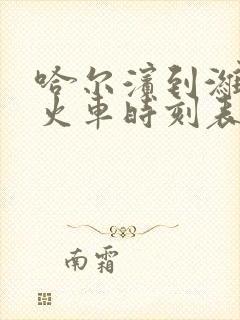 哈尔滨到潍
火车时刻表
南霜